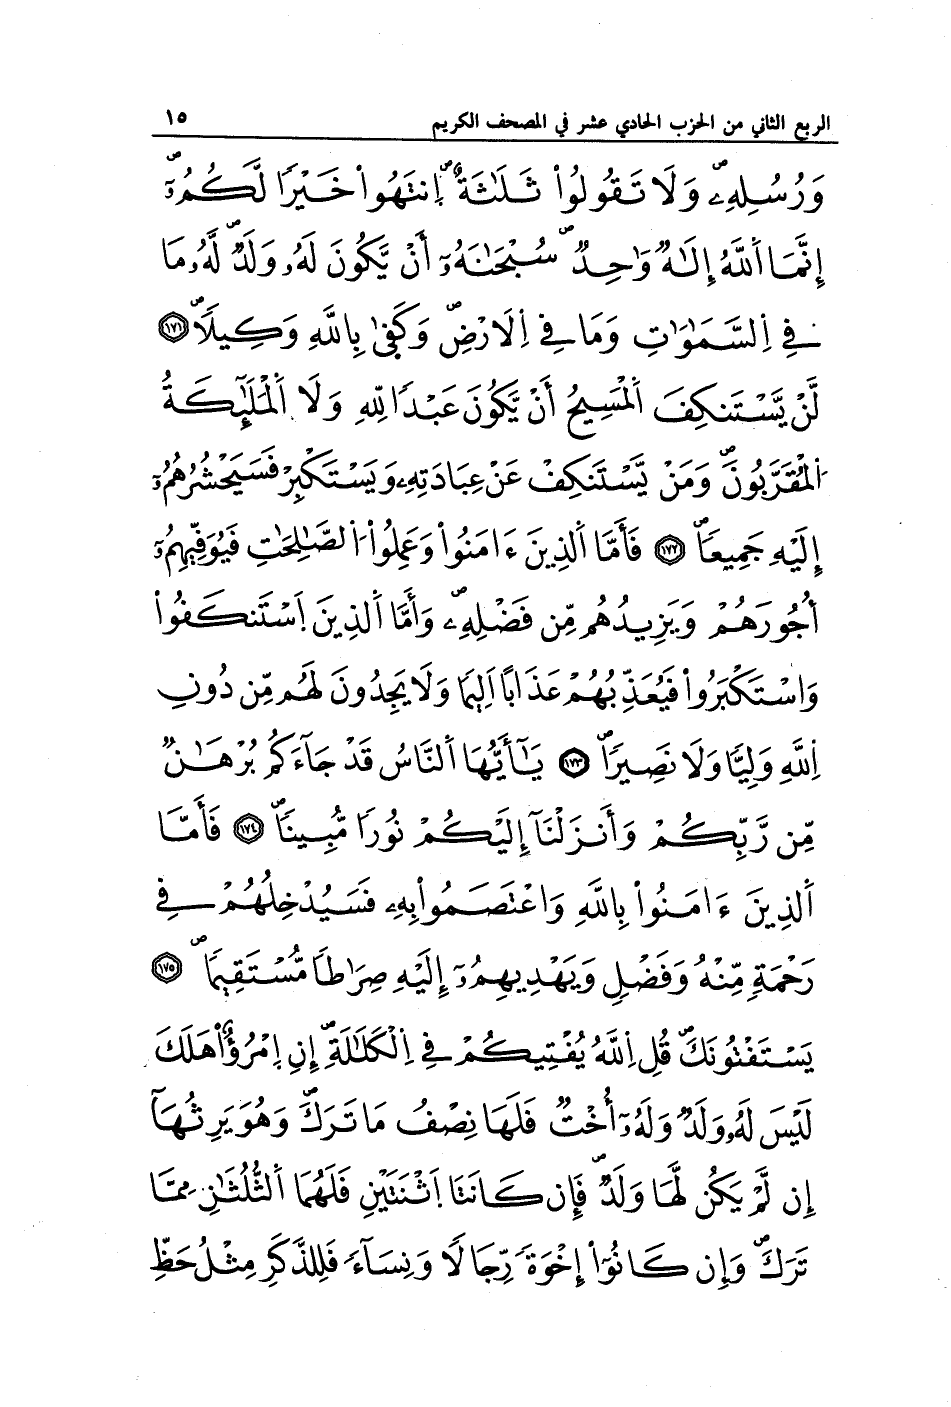 الربع الثاني من الحزب الحادي عشر في المصحف الكريم ١٥
وَرُسُلِهِۦۖ وَلَا تَقُولُواْ ثَلَٰثَةٌۖ اِنتَهُواْ خَيْرٗا لَّكُمُۥٓۖ
إِنَّمَا اَ۬للَّهُ إِلَٰهٞ وَٰحِدٞۖ سُبْحَٰنَهُۥٓ أَنْ يَّكُونَ لَهُۥ وَلَدٞۖ لَّهُۥ مَا
فِے اِ۬لسَّمَٰوَٰتِ وَمَا فِے اِ۬لَارْضِۖ وَكَفَىٰ بِاللَّهِ وَكِيلٗاۖ ١٧١
لَّنْ يَّسْتَنكِفَ اَ۬لْمَسِيحُ أَنْ يَّكُونَ عَبْدٗا لِّلهِ وَلَا اَ۬لْمَلَٰٓئِكَةُ
اُ۬لْمُقَرَّبُونَۖ وَمَنْ يَّسْتَنكِفْ عَنْ عِبَادَتِهِۦ وَيَسْتَكْبِرْ فَسَيَحْشُرُهُمُۥٓ
إِلَيْهِ جَمِيعٗاۖ ١٧٢ فَأَمَّا اَ۬لذِينَ ءَامَنُواْ وَعَمِلُواْ اُ۬لصَّٰلِحَٰتِ فَيُوَفِّيهِمُۥٓ
أُجُورَهُمْ وَيَزِيدُهُم مِّن فَضْلِهِۦۖ وَأَمَّا اَ۬لذِينَ اَ۪سْتَنكَفُواْ
وَاسْتَكْبَرُواْ فَيُعَذِّبُهُمْ عَذَاباً اَلِيمٗا وَلَا يَجِدُونَ لَهُم مِّن دُونِ
اِ۬للَّهِ وَلِيّٗا وَلَا نَصِيرٗاۖ ١٧٣ يَٰٓأَيُّهَا اَ۬لنَّاسُ قَدْ جَآءَكُم بُرْهَٰنٞ
مِّن رَّبِّكُمْ وَأَنزَلْنَآ إِلَيْكُمْ نُورٗا مُّبِينٗاۖ ١٧٤ فَأَمَّا
اَ۬لذِينَ ءَامَنُواْ بِاللَّهِ وَاعْتَصَمُواْ بِهِۦ فَسَيُدْخِلُهُمْ فِے
رَحْمَةٖ مِّنْهُ وَفَضْلٖ وَيَهْدِيهِمُۥٓ إِلَيْهِ صِرَٰطٗا مُّسْتَقِيمٗاۖ ١٧٥
يَسْتَفْتُونَكَۖ قُلِ اِ۬للَّهُ يُفْتِيكُمْ فِے اِ۬لْكَلَٰلَةِۖ إِنِ اِ۪مْرُؤٌاْ هَلَكَ
لَيْسَ لَهُۥ وَلَدٞ وَلَهُۥٓ أُخْتٞ فَلَهَا نِصْفُ مَا تَرَكَۖ وَهُوَ يَرِثُهَآ
إِن لَّمْ يَكُن لَّهَا وَلَدٞۖ فَإِن كَانَتَا اَ۪ثْنَتَيْنِ فَلَهُمَا اَ۬لثُّلُثَٰنِ مِمَّا
تَرَكَۖ وَإِن كَانُوٓاْ إِخْوَةٗ رِّجَالٗا وَنِسَآءٗ فَلِلذَّكَرِ مِثْلُ حَظِّ